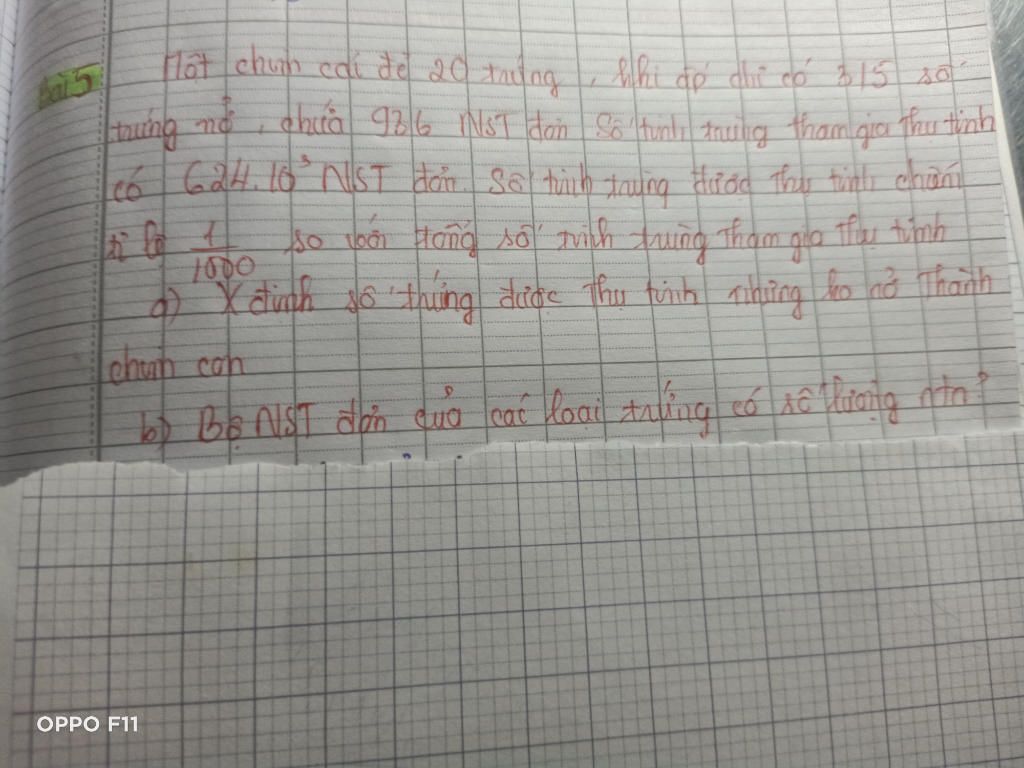 Bài 5
Một chim cái đẻ 20 trứng, khi đó chỉ có 3/5 số
trứng nở, chứa 936 NST đơn Số tinh trùng tham gia thụ tinh
có 624.10³ NST đơn. Số tinh trùng được thụ tinh chiếm
tỉ lệ 1/1000 so với tổng số tinh trùng tham gia thụ tinh
a) Xđịnh số trứng được thụ tinh nhưng ko nở thành
chim con
b) Bộ NST đơn của các loại trứng có số lượng ntn?
OPPO F11